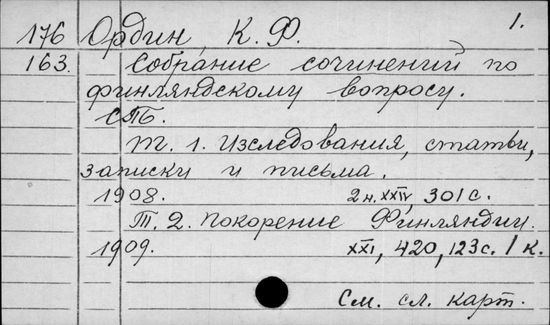 1.
176 Ордин, К. Ф.
163. Собрание сочинений по
финляндскому вопросу.
СПБ.
Т. 1. Изследования, статьи,
записки и письма.
1908. 2 н. XXIV, 301 с.
Т. 2. Покорение Финляндии.
1909. XXI, 420, 123 с. 1 к.
См. сл. карт.